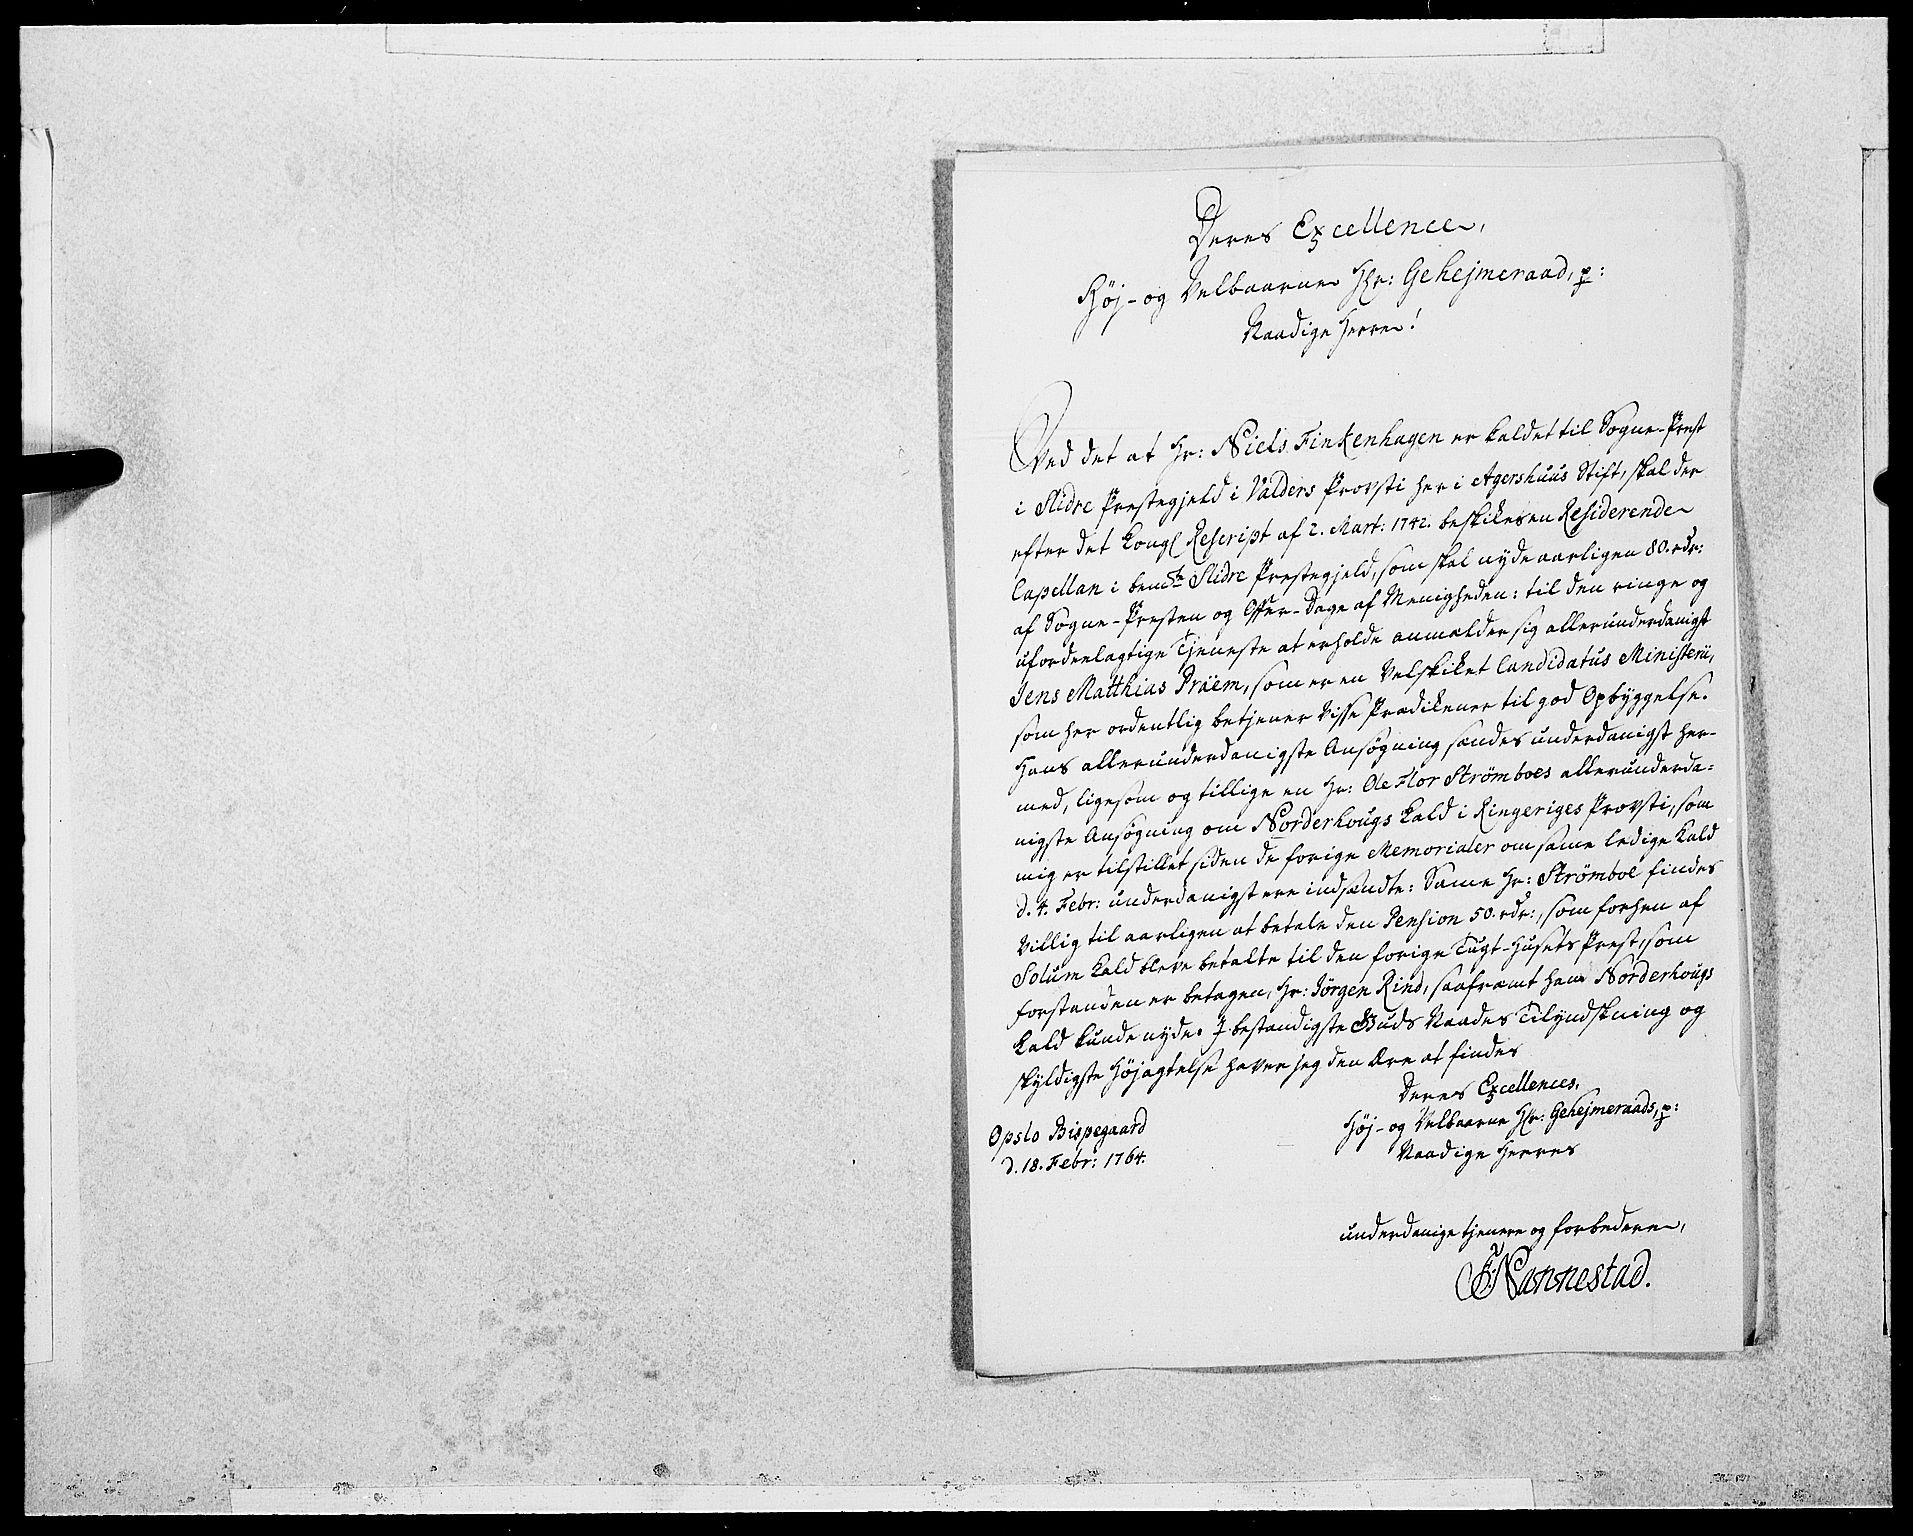 Deres Excellence,
Høj- og Velbaarne Hr: Gehejmeraad, p:
Naadige Herre!
Ved det at Hr: Niels Finkenhagen er kaldet til Sogne-Prest
i Slidre Prestegjeld i Valders Provsti her i Agershuus Stift, skal der
efter det kongl Rescript af 2. Mart: 1742. beskikes en Residerende
Capellan i bemte Slidre Prestegjeld, som skal nyde aarligen 80. rdr:
af Sogne-Presten og Offer-Dage af Menigheden: til den ringe og
ufordeelagtige Tjeneste at erholde anmelder sig allerunderdanigst
Jens Matthias Präem, som er en Velskiket Candidatus Ministerii,
som her ordentlig betjener Visse Prædikener til god Opbyggelse.
Hans allerunderdanigste Ansøgning sendes underdanigst her-
med, ligesom og tillige en Hr: Ole Flor Strömboes allerunderda-
nigste Ansøgning om Norderhougs Kald i Ringeriges Provsti, som
mig er tilstillet siden de forige Memorialer om same ledige Kald
d. 4. Febr: underdanigst ere indsendte: Same Hr: Strömboe findes
Villig til aarligen at betale den Pension 50. rdr:, som forhen af
Solum Kald bleve betalte til den forige Tugt-Husets Prest, som
forstanden er betagen, Hr: Jörgen Rind, saafremt han Norderhougs
Kald kunde nyde. I bestandigste Guds Naades Tilyndskning og
skyldigste Højagtelse haver jeg den Ære at findes
Deres Excellences,
Høj- og Velbaarne Hr: Gehejmeraads, p:
Naadige Herres
Opslo Bispegaard
d. 18. Febr: 1764.
underdanige tjenere og forbedere,
F. Nannestad.